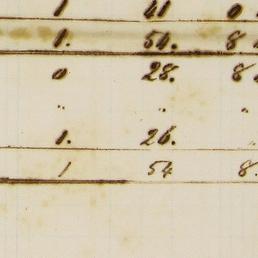 1 41 0
1. 54. 8
0 28. 8
" " "
1. 26. "
1 54 8.